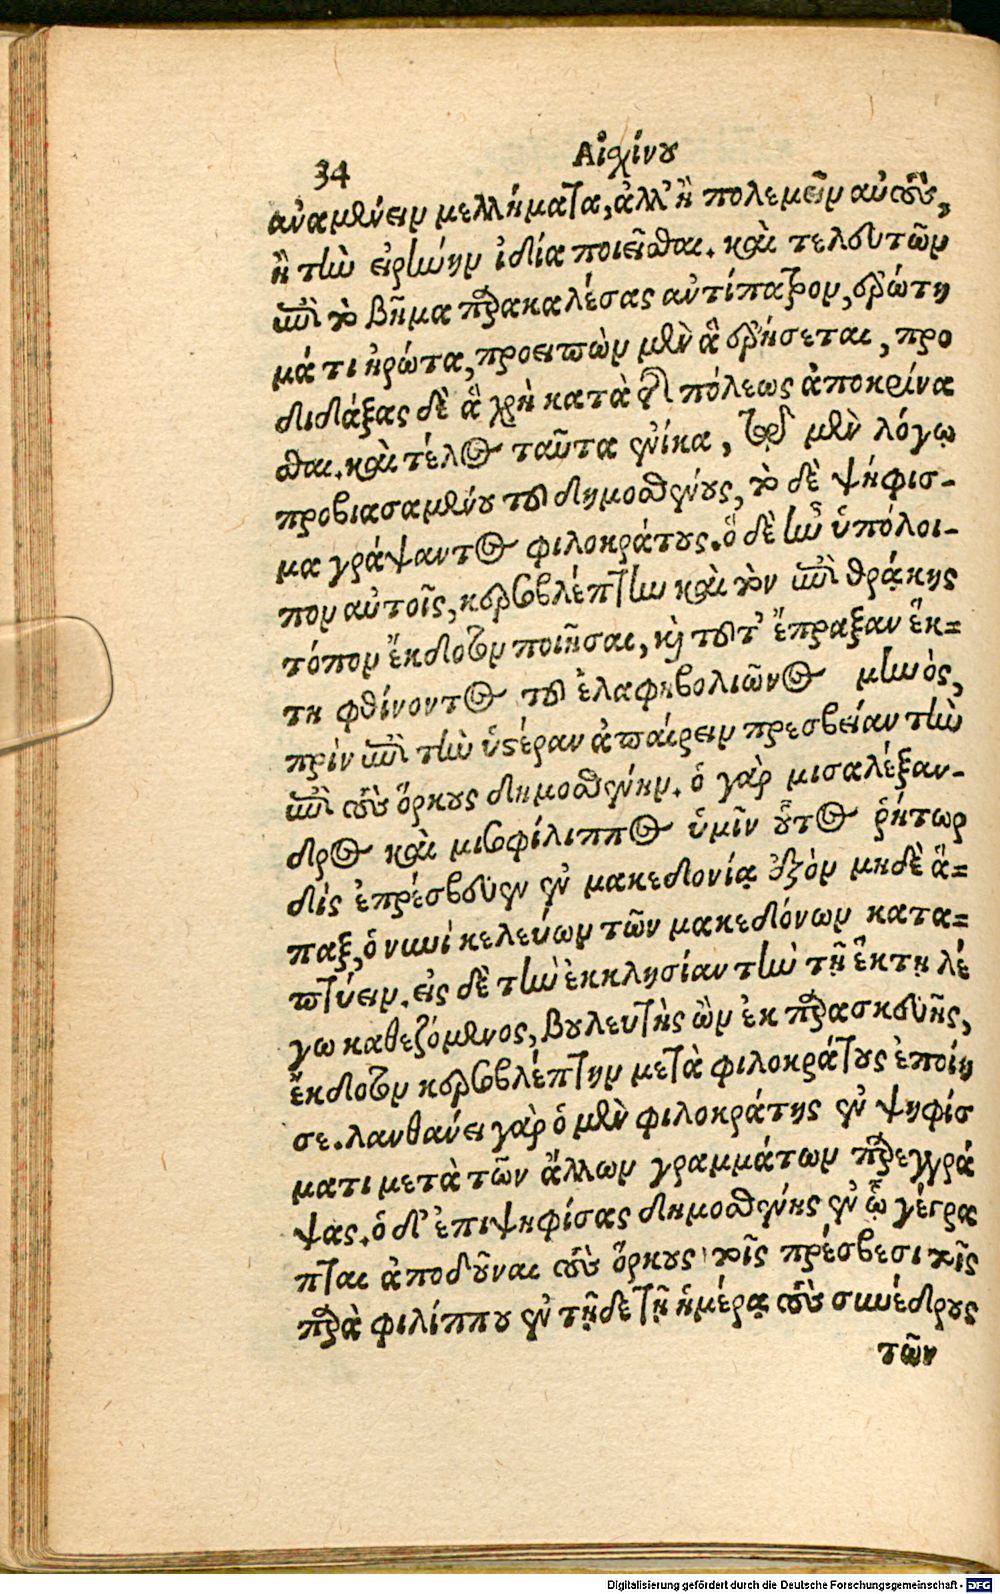 34 Αἰσχίνου
ἀναμένειν μελλήματα, ἀλλ' ἢ πολεμεῖν αὐτοὺς,
ἢ τὴν εἰρήνην ἰδία ποιεῖσθαι. καὶ τελευτῶν
ἐπὶ τὸ βῆμα παρακαλέσας αὐτίπατρον, ἐρώτη
μά τι ἠρώτα, προειπὼν μὲν ἃ ἐρήσεται, προ
διδάξας δὲ ἃ χρὴ κατὰ τῆς πόλεως ἀποκρίνα
σθαι. καὶ τέλος ταῦτα ἐνίκα, τῷ μὲν λόγῳ
προβιασαμένου τοῦ δημοσθένους, τὸ δὲ ψήφισ-
μα γράψαντος φιλοκράτους. ὃ δὲ ἦν ὑπόλοι-
πον αὐτοῖς, κερσοβλέπτην καὶ τὸν ἐπὶ θρᾴκης
τόπον ἔκδοτον ποιῆσαι, καὶ τοῦτ' ἔπραξαν ἕκ=
τῃ φθίνοντος τοῦ ἐλαφηβολιῶνος μηνὸς,
πρὶν ἐπὶ τὴν ὑστέραν ἀπαίρειν πρεσβείαν τὴν
ἐπὶ τοὺς ὅρκους δημοσθένην. ὁ γὰρ μισαλέξαν-
δρος καὶ μισοφίλιππος ὑμῖν οὗτος ῥήτωρ
δὶς ἐπρέσβευσεν ἐν μακεδονίᾳ ἐξὸν μηδὲ ἅ=
παξ, ὁ νυνὶ κελεύων τῶν μακεδόνων κατα=
πτύειν. εἰς δὲ τὴν ἐκκλησίαν τὴν τῇ ἕκτῃ λέ
γω καθεζόμενος, βουλευτὴς ὢν ἐκ παρασκευῆς,
ἔκδοτον κερσοβλέπτην μετὰ φιλοκράτους ἐποίη
σε. λανθάνει γὰρ ὁ μὲν φιλοκράτης ἐν ψηφίσ
ματι μετὰ τῶν ἄλλων γραμμάτων παρεγγρά
ψας. ὁ δ' ἐπιψηφίσας δημοσθένης ἐν ᾧ γέγρα
πται ἀποδοῦναι τοὺς ὅρκους τοῖς πρέσβεσι τοῖς
παρὰ φιλίππου ἐν τῇδε τῇ ἡμέρᾳ τοὺς συνέδρους
τῶν
Digitalisierung gefördert durch die Deutsche Forschungsgemeinschaft - DFG